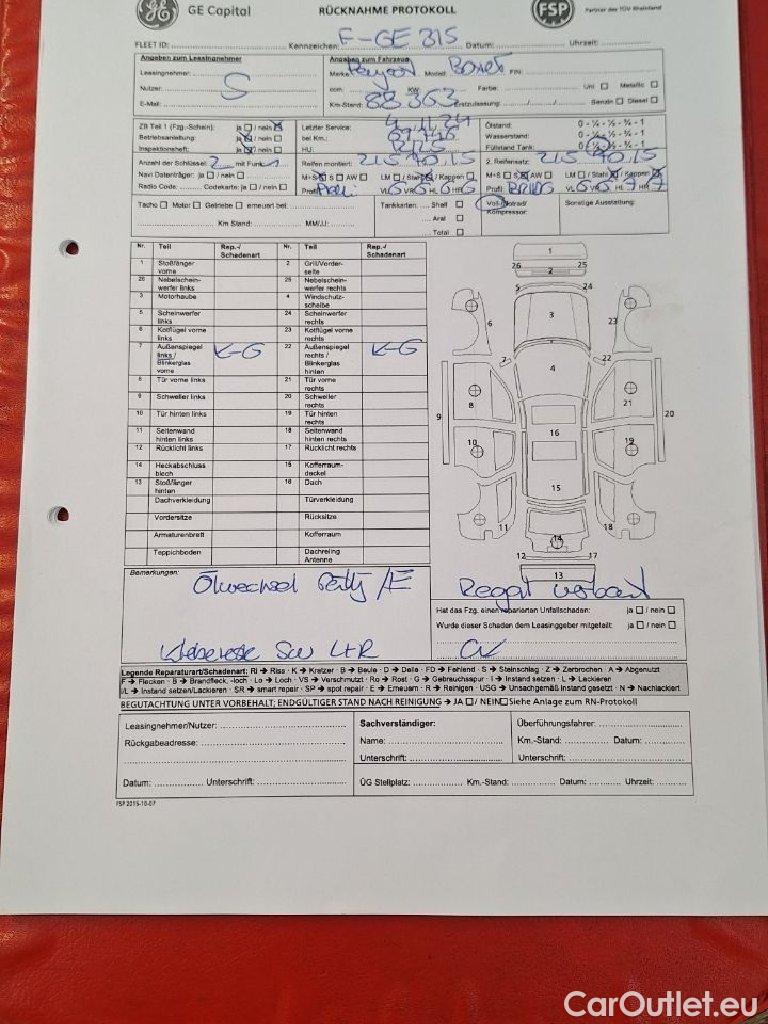 GE Capital RÜCKNAHME PROTOKOLL FSP Partner des TÜV Rheinland
FLEET ID: Kennzeichen: F-GE 315 Datum: Uhrzeit:
Angaben zum Leasingnehmer
Leasingnehmer:
Nutzer: S
E-Mail:
Angaben zum Fahrzeug
Marke Modell Boxer FIN:
ccm: KW Farbe: Uni Metallic
Km-Stand: 88363 Erstzulassung: Benzin Diesel
ZB Teil 1 (Fzg.-Schein): ja / nein
Betriebsanleitung: ja / nein
Inspektionsheft: ja / nein
Letzter Service: 4.11.24
bei Km.:
HU: 12/25
Ölstand: 0 - ¼ - ½ - ¾ - 1
Wasserstand: 0 - ¼ - ½ - ¾ - 1
Füllstand Tank: 0 - ¼ - ½ - ¾ - 1
Anzahl der Schlüssel: 2 mit Funk: 1
Navi Datenträger: ja / nein
Radio Code: Codekarte: ja / nein
Reifen montiert: 215 70.15
M+S S AW LM / Stahl / Kappen
Profil: VL 6 VR 6 HL 6 HR 6
2. Reifensatz: 215 70.15
M+S S AW LM / Stahl / Kappen
Profil: VL 6 VR 6 HL 7 HR 7
Tacho Motor Getriebe erneuert bei:
Km Stand: MM/JJ:
Tankkarten: Shell
Aral
Total
Voll-/Notrad/
Kompressor:
Sonstige Ausstattung:
Nr. Teil Rep.-/ Schadenart Nr. Teil Rep.-/ Schadenart
1 Stoßfänger vorne 2 Grill/Vorderseite
26 Nebelscheinwerfer links 25 Nebelscheinwerfer rechts
3 Motorhaube 4 Windschutzscheibe
5 Scheinwerfer links 24 Scheinwerfer rechts
6 Kotflügel vorne links 23 Kotflügel vorne rechts
7 Außenspiegel links / Blinkerglas vorne K-G 22 Außenspiegel rechts / Blinkerglas hinten K-G
8 Tür vorne links 21 Tür vorne rechts
9 Schweller links 20 Schweller rechts
10 Tür hinten links 19 Tür hinten rechts
11 Seitenwand hinten links 18 Seitenwand hinten rechts
12 Rücklicht links 17 Rücklicht rechts
14 Heckabschlussblech 15 Kofferraumdeckel
13 Stoßfänger hinten 16 Dach
Dachverkleidung Türverkleidung
Vordersitze Rücksitze
Armaturenbrett Kofferraum
Teppichboden Dachreling Antenne
1
26 25
2
5 24
3
6 23
7 22
4
8 21
9 20
16
10 19
15
11 18
14
12 17
13
Bemerkungen:
Ölwechsel fällig /E Regal verbaut
Klebereste SW L+R
Hat das Fzg. einen reparierten Unfallschaden: ja / nein
Wurde dieser Schaden dem Leasinggeber mitgeteilt: ja / nein
Legende Reparaturart/Schadenart: RI → Riss · K → Kratzer · B → Beule · D → Delle · FD → Fehlend · S → Steinschlag · Z → Zerbrochen · A → Abgenutzt
F → Flecken · B → Brandfleck, -loch · Lo → Loch · VS → Verschmutzt · Ro → Rost · G → Gebrauchsspur · I → Instand setzen · L → Lackieren
I/L → Instand setzen/Lackieren · SR → smart repair · SP → spot repair · E → Erneuern · R → Reinigen · USG → Unsachgemäß instand gesetzt · N → Nachlackiert
BEGUTACHTUNG UNTER VORBEHALT; ENDGÜLTIGER STAND NACH REINIGUNG → JA / NEIN Siehe Anlage zum RN-Protokoll
Leasingnehmer/Nutzer:
Rückgabeadresse:
Datum: Unterschrift:
Sachverständiger:
Name:
Unterschrift:
Überführungsfahrer:
Km.-Stand: Datum:
Unterschrift:
ÜG Stellplatz: Km.-Stand: Datum: Uhrzeit:
FSP 2015-10-07
CarOutlet.eu